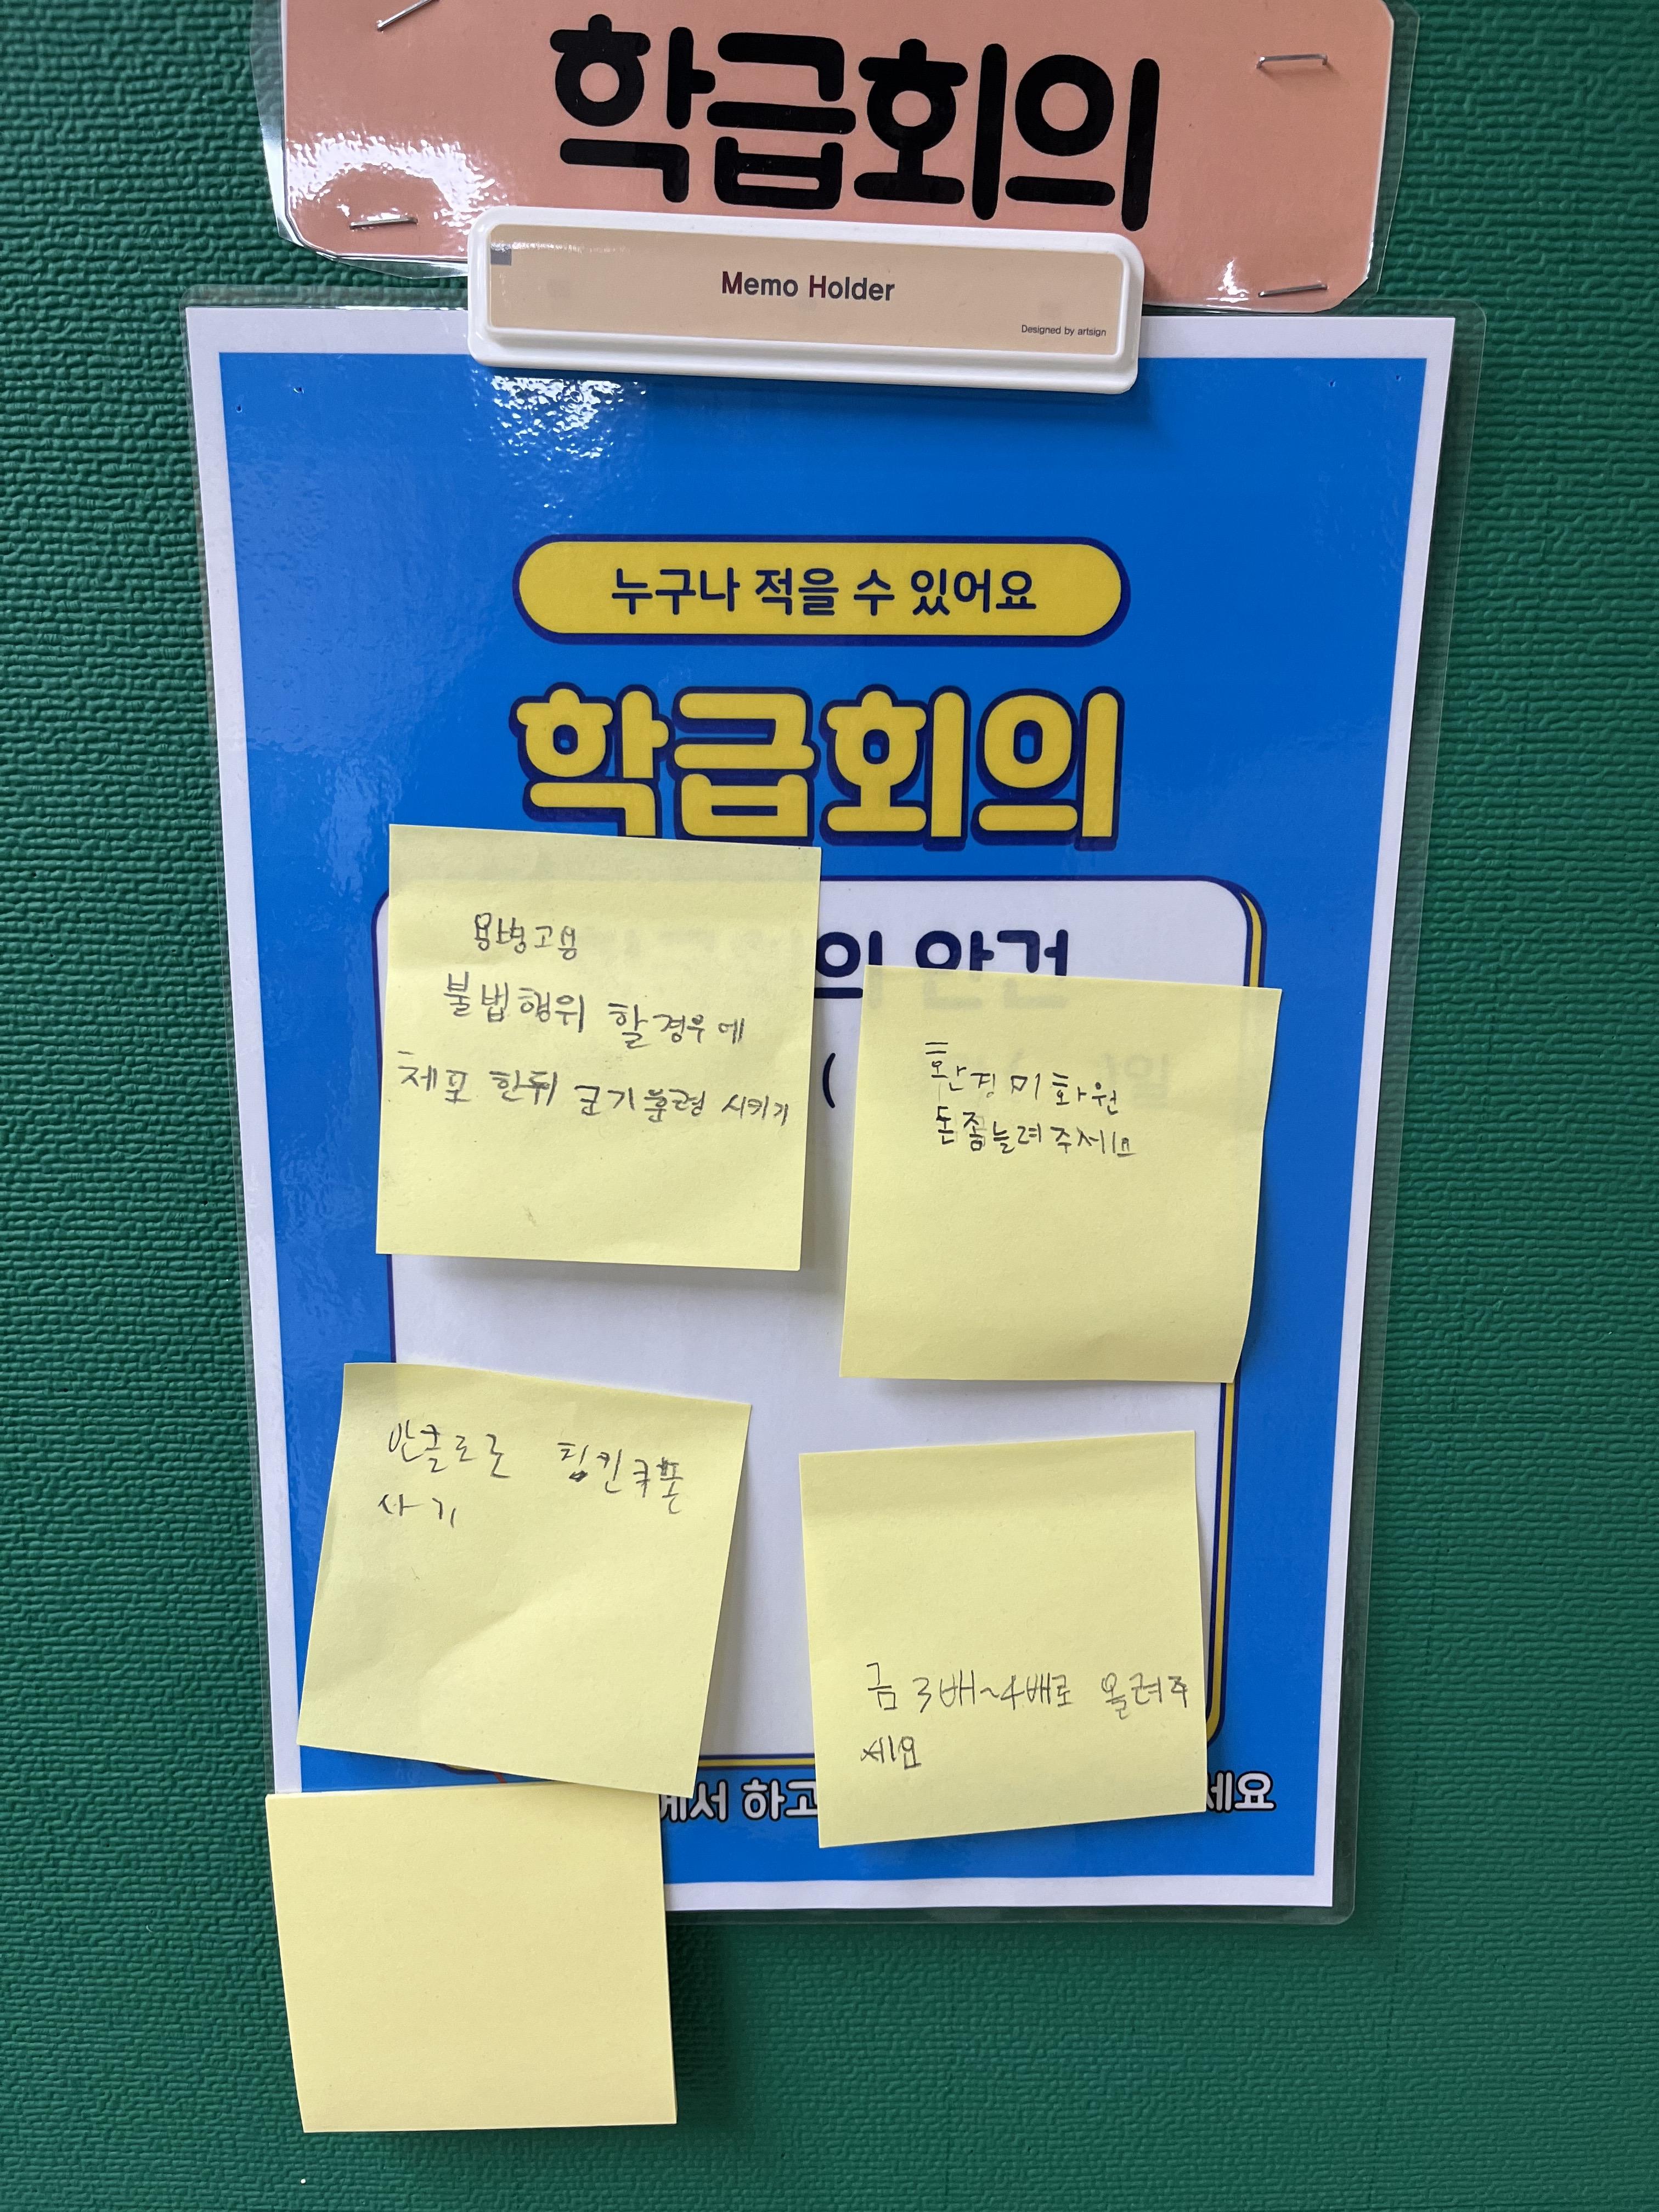 학급회의
Memo Holder
Designed by artsign
누구나 적을 수 있어요
학급회의
의 안건
(
용병고용
불법행위 할경우에
체포 한뒤 군기훈련 시키기
환경미화원
돈좀늘려주세요
사기
금 3배~4배로 올려주
세요
에서 하고
세요